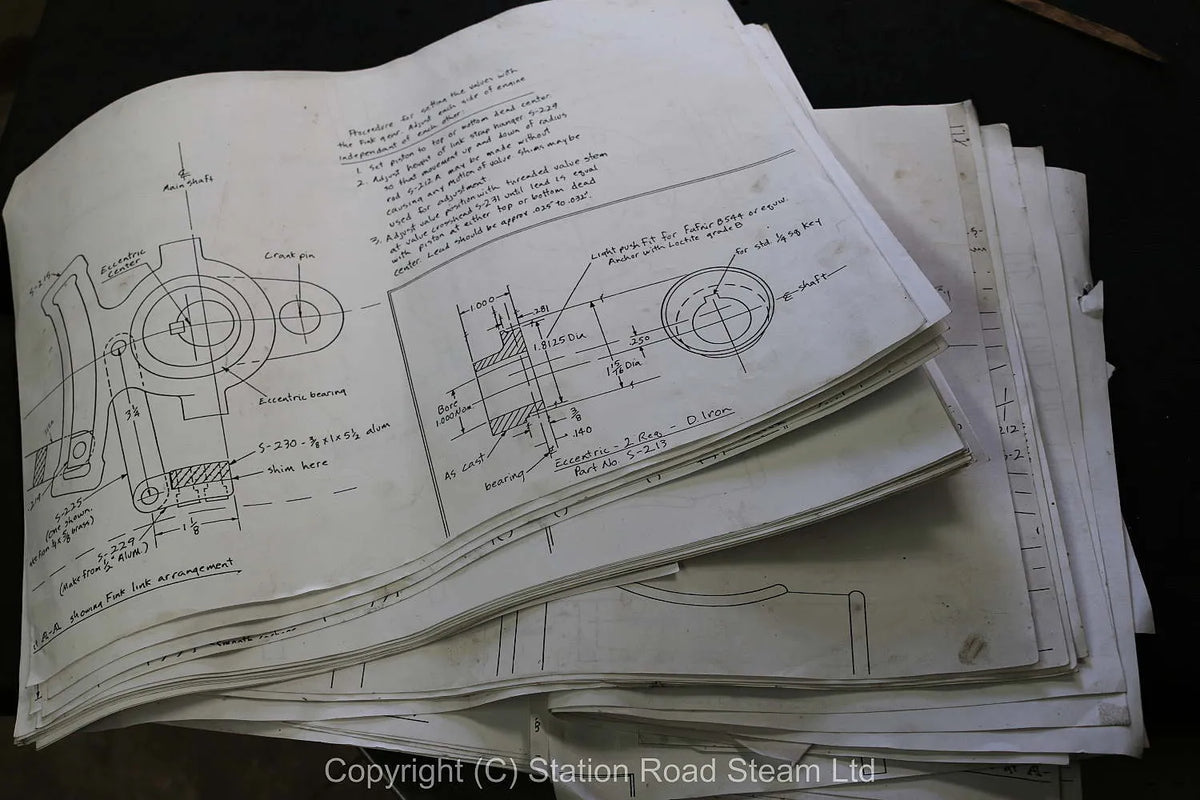 Procedure for setting the valves with
the Fink gear. Adjust each side of engine
independant of each other.
1. Set piston to top or bottom dead center.
2. Adjust height of link strap hanger S-229
so that movement up and down of radius
rod S-212A may be made without
causing any motion of valve. Shims may be
used for adjustment.
3. Adjust valve position with threaded valve stem
at valve crosshead S-231 until lead is equal
with piston at either top or bottom dead
center. Lead should be approx .025" to .032".
Main shaft
Eccentric
Center
Crank pin
S-215
Eccentric bearing
3 1/4
S-230 - 3/8 x 1 x 5 1/2 alum
Shim here
S-225
(One shown.
Make from 1/4 x 5/8 brass)
1 1/8
S-229
(Make from 1/2" Alum.)
at A-A showing Fink link arrangement
Light push fit for Fafnir B544 or equiv.
Anchor with Loctite grade B
For std. 1/4 sq key
℄-shaft
1.000
.281
1.8125 Dia
1 15/16 Dia
.250
Bore
1.000 Nom.
3/8
.140
As cast
bearing
Eccentric - 2 Req. - D. Iron
Part No. S-213
212
Copyright (C) Station Road Steam Ltd